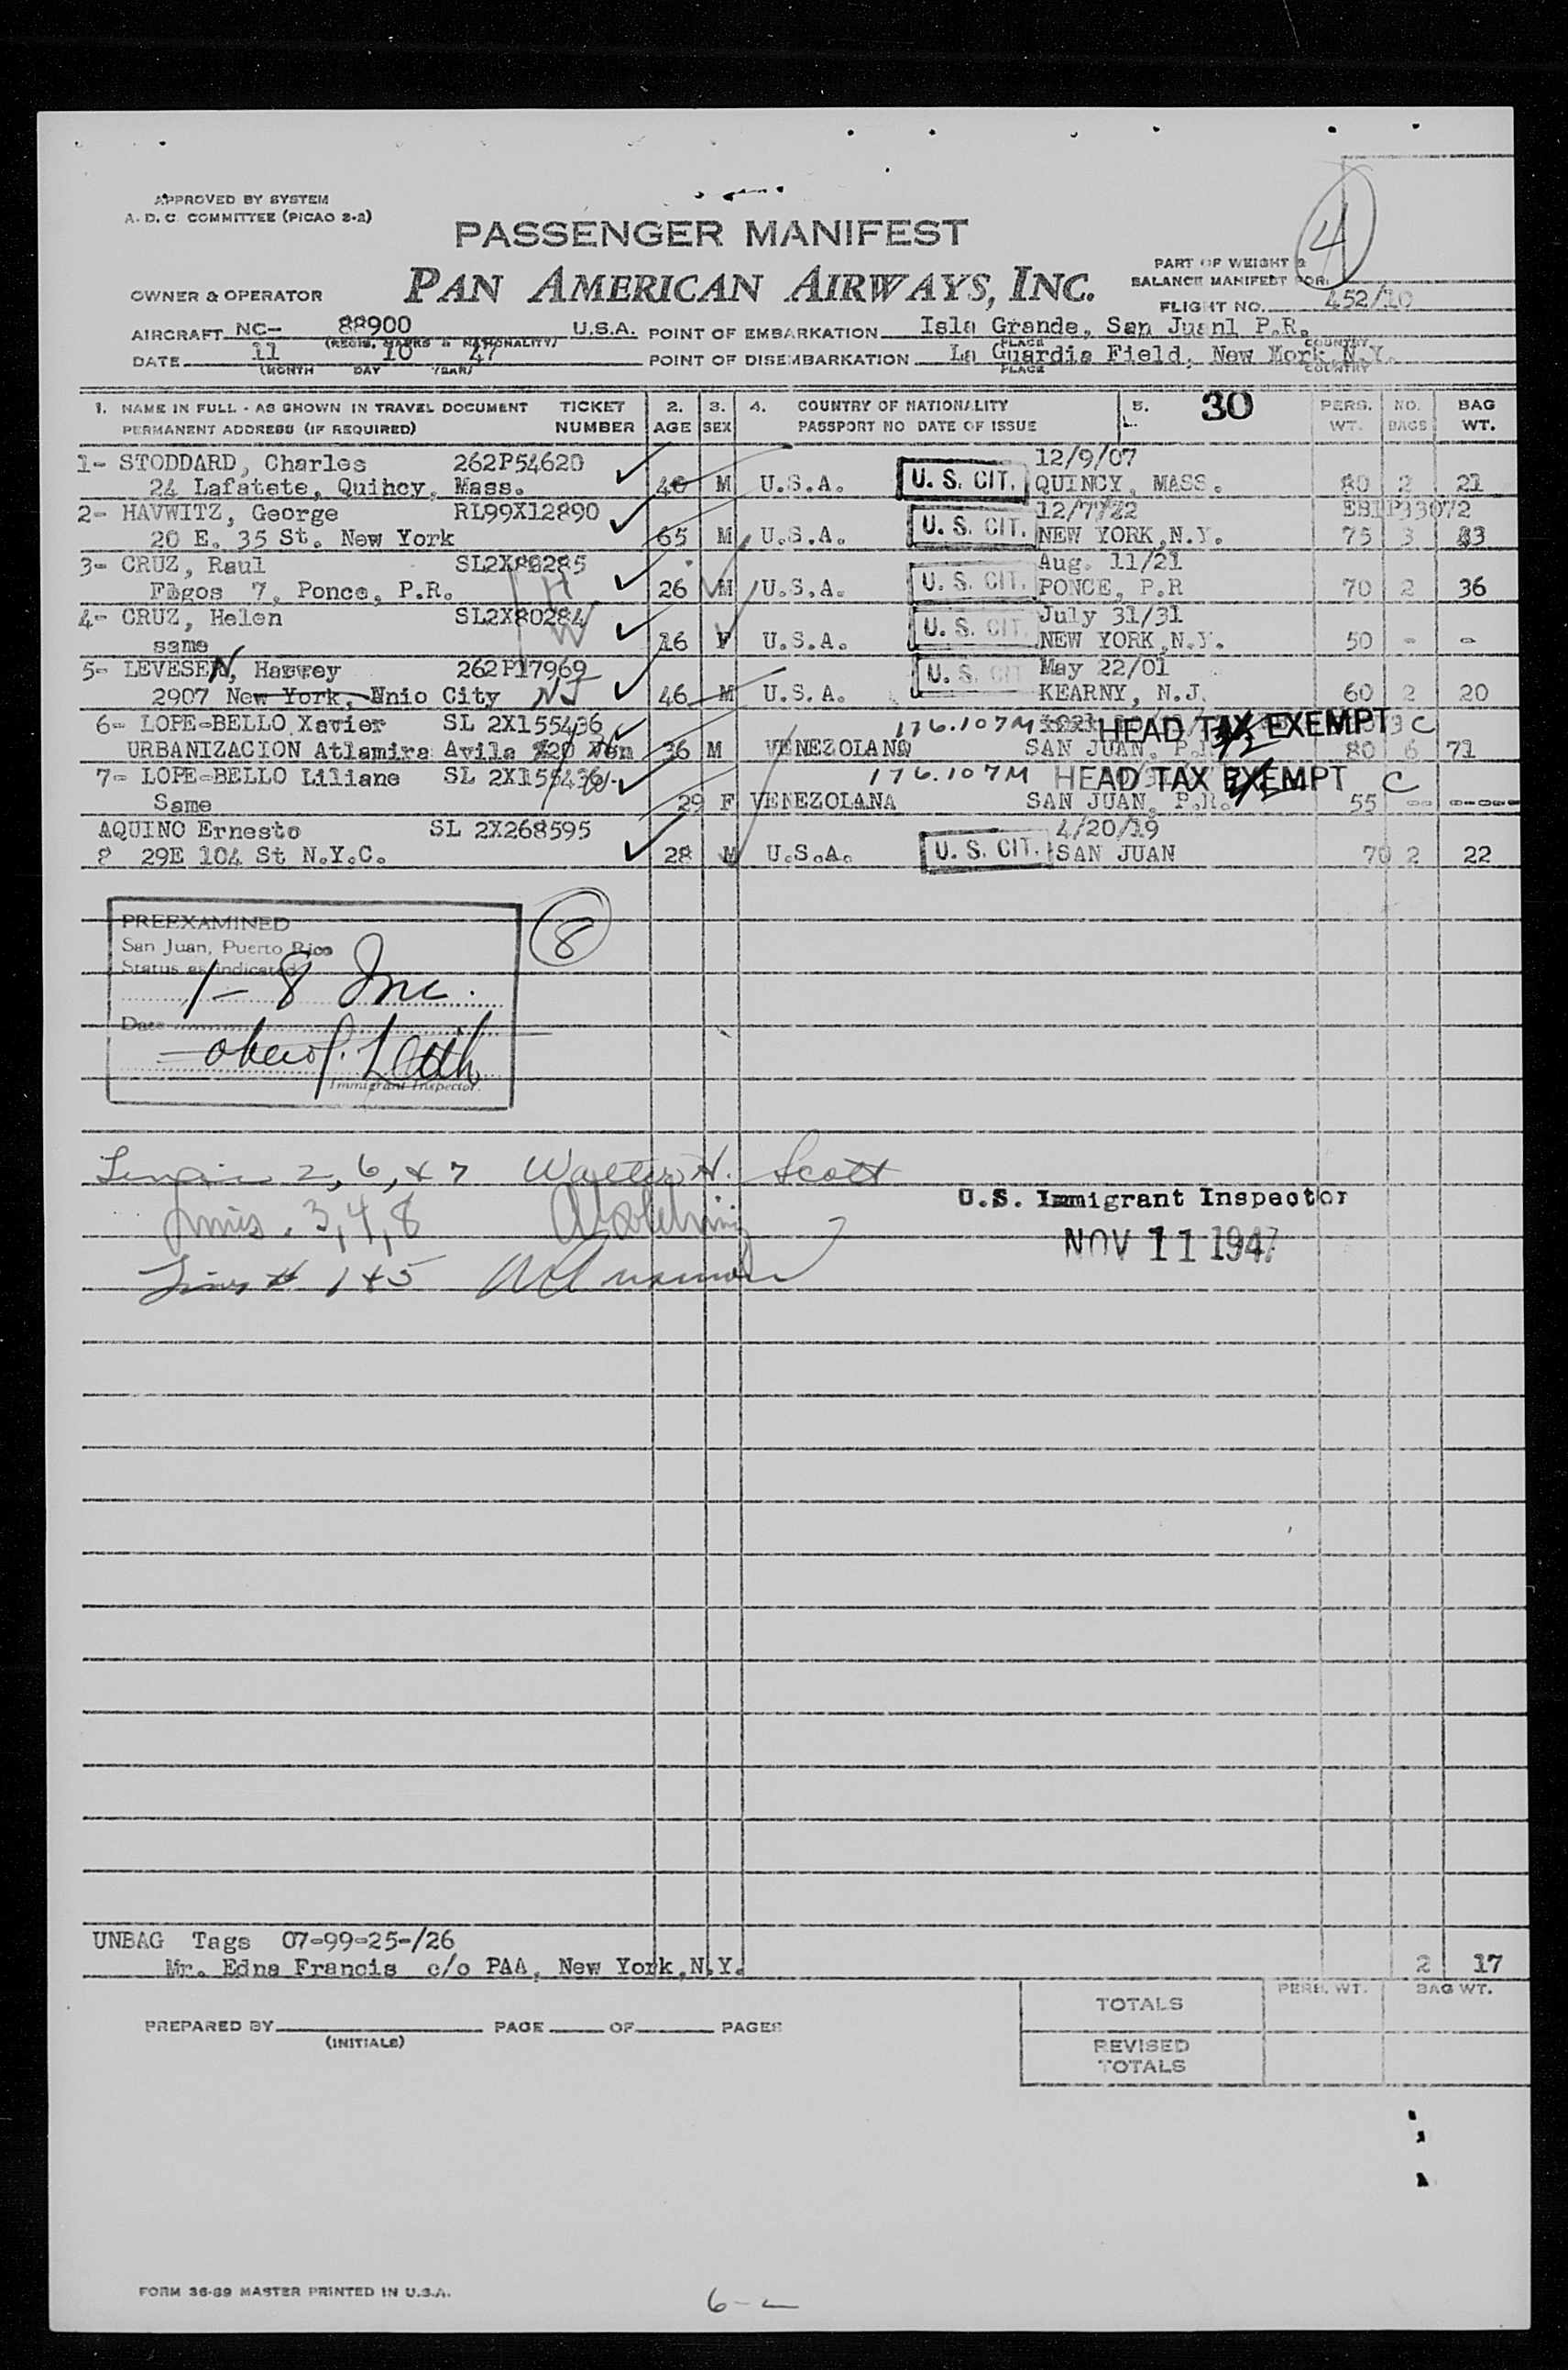 APPROVED BY SYSTEM
A. D. C. COMMITTEE (PICAO 2-2)
4
PASSENGER MANIFEST
PAN AMERICAN AIRWAYS, INC.
PART OF WEIGHT &
BALANCE MANIFEST FOR:
OWNER & OPERATOR
FLIGHT NO. 452/10
AIRCRAFT NC- 88900 U.S.A. POINT OF EMBARKATION Isla Grande, San Juan1 P.R.
(REGIS. MARKS & NATIONALITY) PLACE COUNTRY
DATE 11 10 47 POINT OF DISEMBARKATION La Guardia Field, New York N.Y.
(MONTH DAY YEAR) PLACE COUNTRY
1. NAME IN FULL - AS SHOWN IN TRAVEL DOCUMENT TICKET 2. 3. 4. COUNTRY OF NATIONALITY 5. 30 PERS. NO. BAG
PERMANENT ADDRESS (IF REQUIRED) NUMBER AGE SEX PASSPORT NO DATE OF ISSUE WT. BAGS WT.
1- STODDARD, Charles 262P54620 12/9/07
24 Lafatete, Quihcy, Mass. 40 M U.S.A. U. S. CIT. QUINCY, MASS. 80 2 21
2- HAVWITZ, George RL99X12890 EBIP33072
20 E. 35 St. New York 65 M U.S.A. U. S. CIT. NEW YORK,N.Y. 75 3
3- CRUZ, Raul H Aug. 11/21
7, Ponce, P.R. 26 M U.S.A. U. S. CIT. PONCE, P.R 70 2 36
4- CRUZ, Helen SL2X80284 W July 31/31
same 16 F U.S.A. U. S. CIT. NEW YORK,N.Y. 50 - -
5- LEVESEN, 262P17969 May 22/01
2907 New York, Unio City NJ 46 M U.S.A. U. S. CIT KEARNY, N.J. 60 2 20
6- LOPE-BELLO Xavier SL 2X155436 176.107M HEAD TAX EXEMPT C
URBANIZACION Atlamira Avila 36 M VENEZOLANO SAN JUAN, P.R. 80 6 71
7- LOPE-BELLO Liliane SL 2X155436 176.107M HEAD TAX EXEMPT C
Same 29 F VENEZOLANA SAN JUAN, P.R. 55
AQUINO Ernesto SL 2X268595 4/20/19
8 29E 104 St N.Y.C. 28 M U.S.A. U. S. CIT. SAN JUAN 70 2 22
PREEXAMINED
San Juan, Puerto Rico
Status as indicated
1 - 8 Inc.
Date
Immigrant Inspector.
8
2, 6, & 7 Walter H. Scott
U.S. Immigrant Inspector
Lines. 3, 4, 8
NOV 11 1947
Lines # 1 & 5
UNBAG Tags 07-99-25-/26
Mr. Edna Francis c/o PAA, New York,N.Y. 2 17
TOTALS PERS. WT. BAG WT.
PREPARED BY PAGE OF PAGES
(INITIALS)
REVISED
TOTALS
FORM 36-89 MASTER PRINTED IN U.S.A.